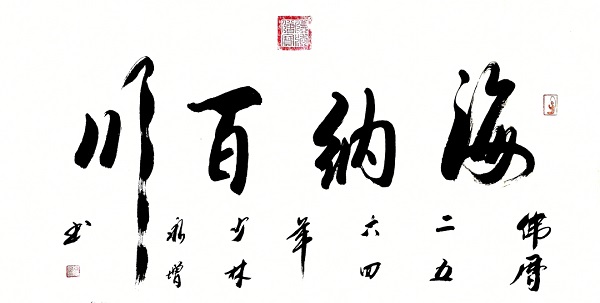 海纳百川
佛曆二五六四年少林永增书